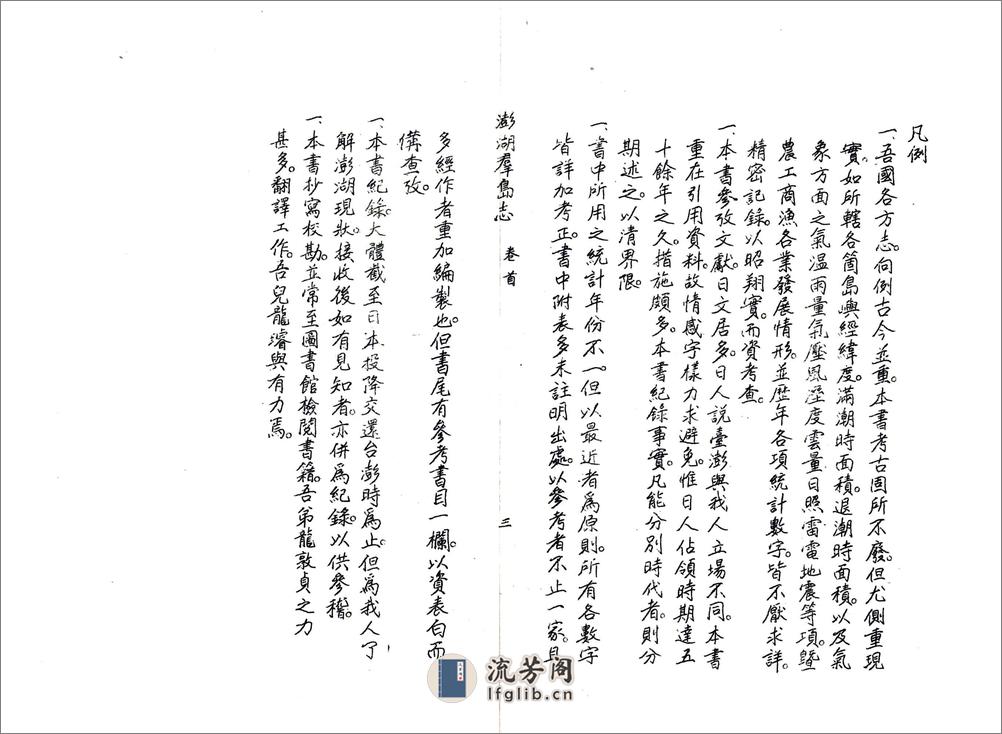 凡例
一、吾國各方志。向例古今並重。本書考古固所不廢。但尤側重現
實。如所轄各箇島嶼經緯度。滿潮時面積。退潮時面積。以及氣
象方面之氣溫雨量氣壓風溼度雲量日照雷電地震等項。暨
農工商漁各業發展情形。並歷年各項統計數字。皆不厭求詳。
精密記錄。以昭翔實。而資考查。
一、本書參攷文獻。日文居多。日人說臺澎與我人立場不同。本書
重在引用資料。故情感字樣力求避免。惟日人佔領時期達五
十餘年之久。措施頗多。本書紀錄事實。凡能分別時代者。則分
期述之。以清界限。
一、書中所用之統計年份不一。但以最近者為原則。所有各數字
皆詳加考正。書中附表多未註明出處。以參考者不止一家。且
澎湖羣島志 卷首 三
多經作者重加編製也。但書尾有參考書目一欄。以資表白而
備查攷。
一、本書紀錄。大體截至日本投降交還台澎時為止。但為我人了
解澎湖現狀。接收後如有見知者。亦併為紀錄。以供參稽。
一、本書抄寫校勘。並常至圖書館檢閱書籍。吾弟龍敦貞之力
甚多。翻譯工作。吾兒龍濬與有力焉。
流芳阁
lfglib.cn